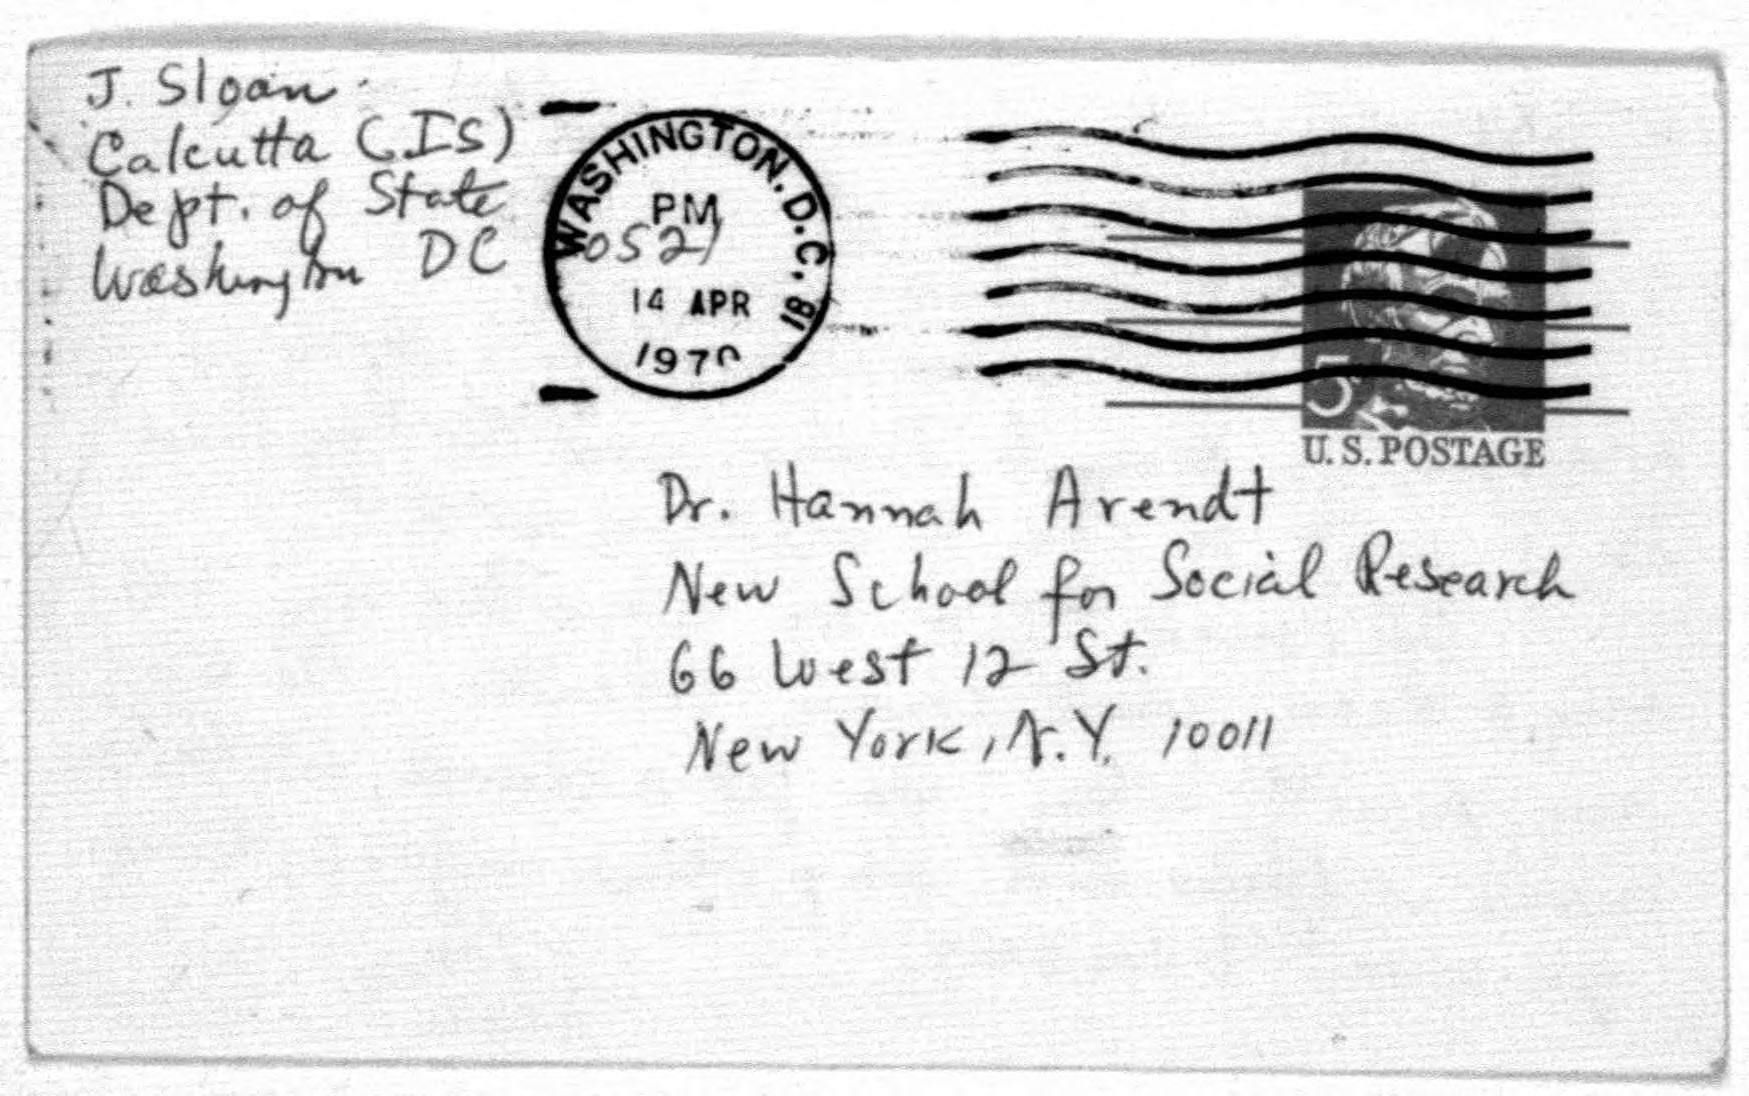 J. Sloan
Calcutta (IS)
Dept. of State
Washington DC 20521
WASHINGTON, D.C. 18
PM
14 APR
1970
5
U.S. POSTAGE
Dr. Hannah Arendt
New School for Social Research
66 West 12 St.
New York, N.Y. 10011